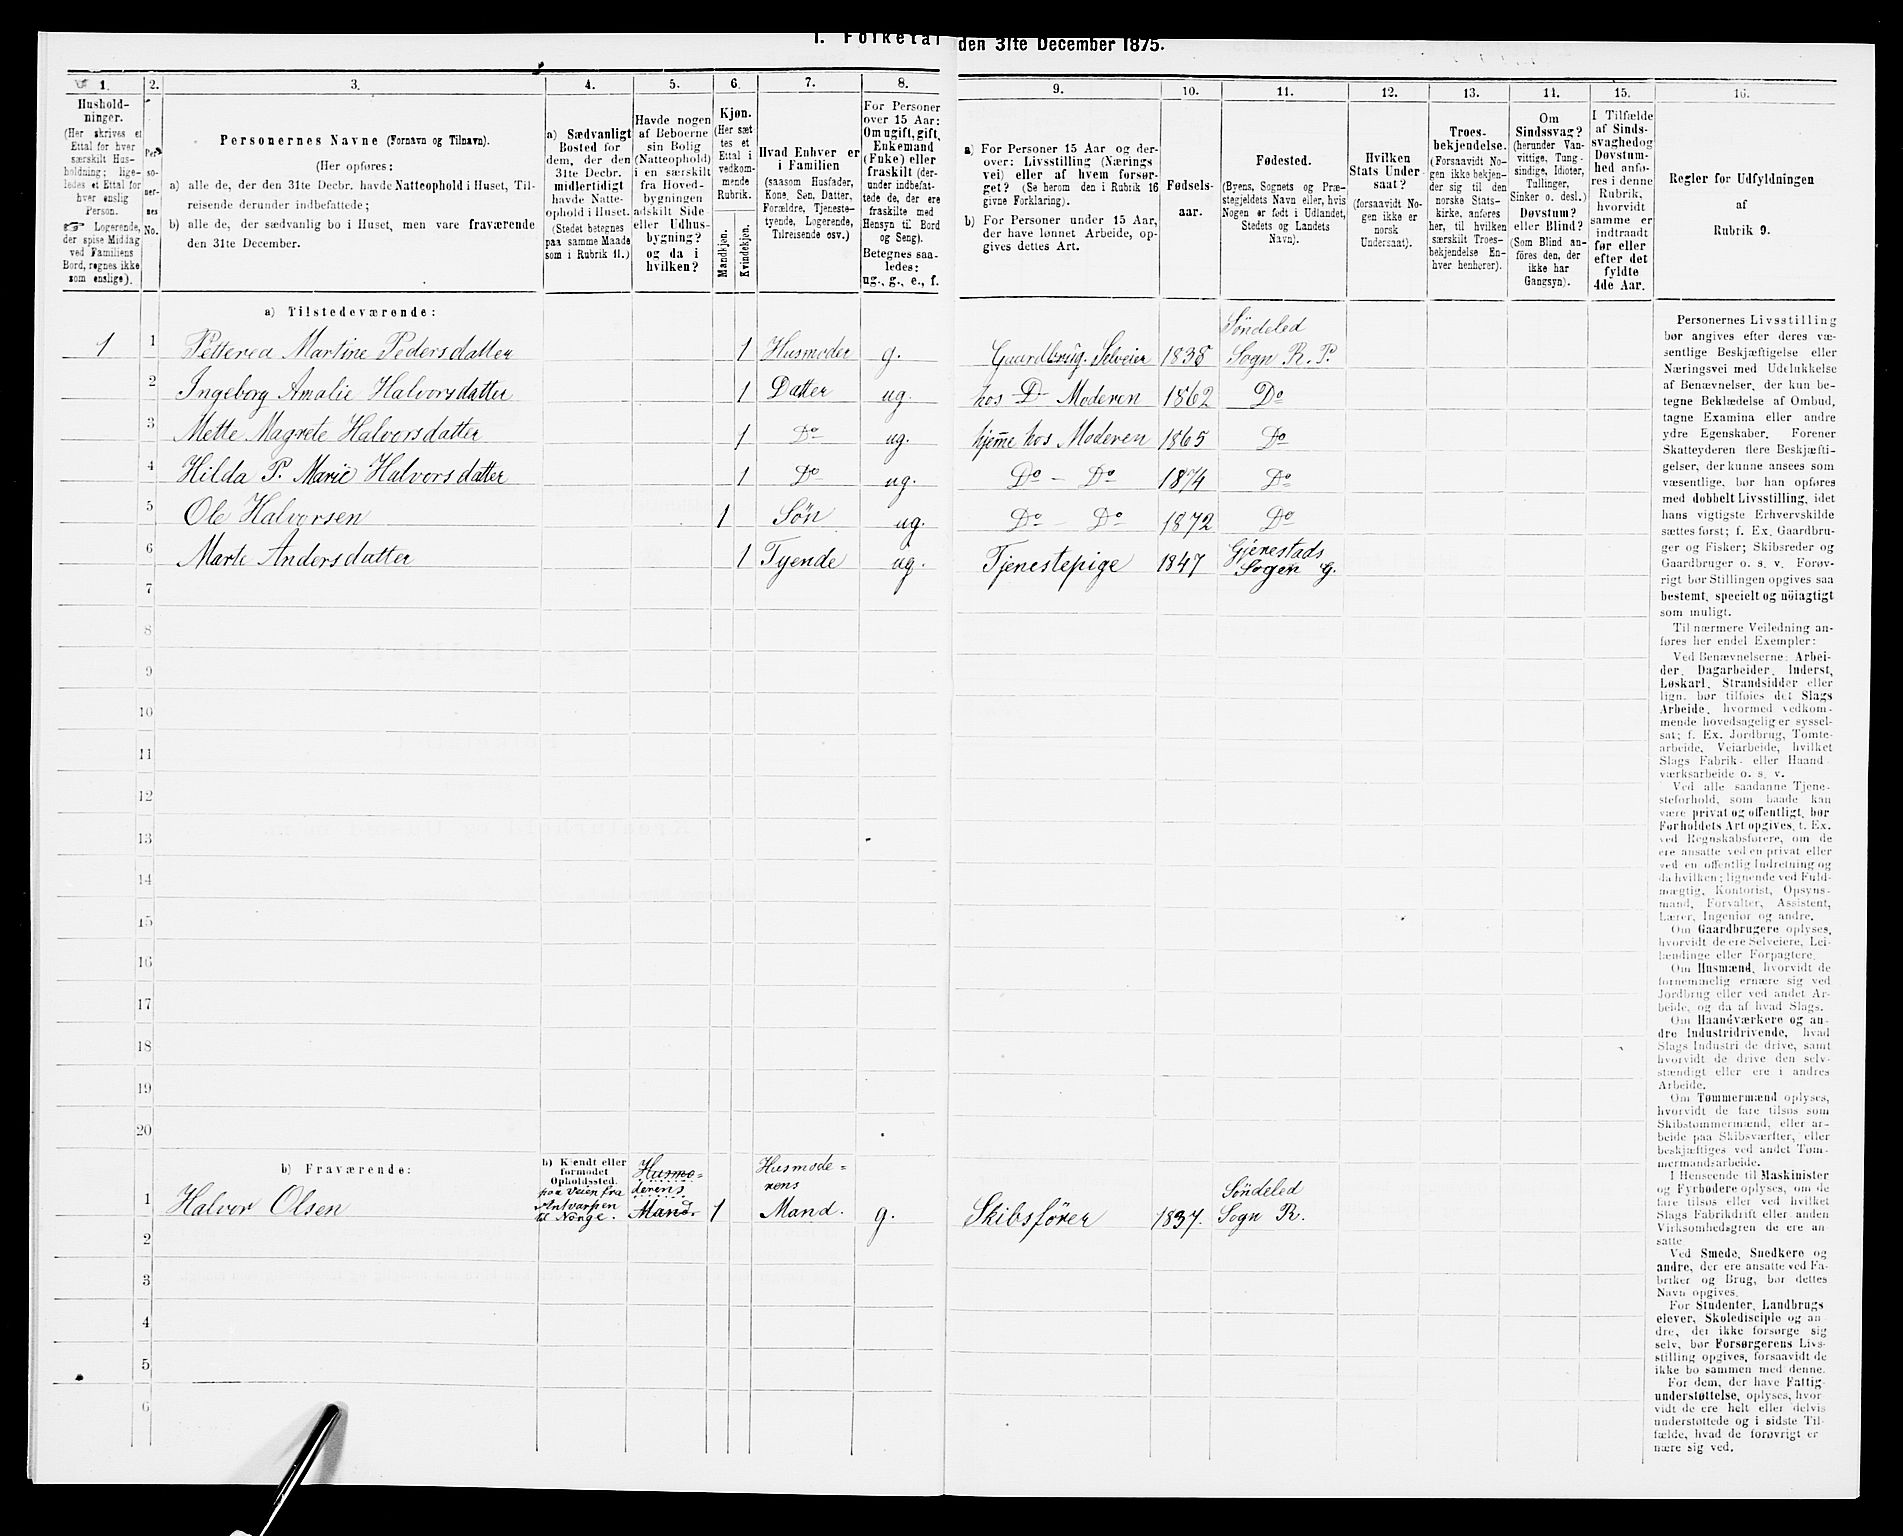 1. Folketal den 31te December 1875.
1. 2. 3. 4. 5. 6. 7. 8. 9. 10. 11. 12. 13. 14. 15. 16.
Hushold-
ninger.
(Her skrives et
Ettal for hver
særskilt Hus-
holdning; lige-
ledes et Ettal for
hver enslig
Person.
☞ Logerende,
der spise Middag
ved Familiens
Bord, regnes ikke
som enslige).
Per-
so-
ner-
nes
No.
Personernes Navne (Fornavn og Tilnavn).
(Her opføres:
a) alle de, der den 31te Decbr. havde Natteophold i Huset, Til-
reisende derunder indbefattede;
b) alle de, der sædvanlig bo i Huset, men vare fraværende
den 31te December.
a) Sædvanligt
Bosted for
dem, der den
31te Decbr.
midlertidigt
havde Natte-
ophold i Huset.
(Stedet betegnes
paa samme Maade
som i Rubrik 11.)
Havde nogen
af Beboerne
sin Bolig
(Natteophold)
i en særskilt
fra Hoved-
bygningen
adskilt Side-
eller Udhus-
bygning?
og da i
hvilken?
Kjøn.
(Her sæt-
tes et
Ettal i
vedkom-
mende
Rubrik.
Mandkjøn.
Kvindekjøn.
Hvad Enhver er
i Familien
(saasom Husfader,
Kone, Søn, Datter,
Forældre, Tjeneste-
tyende, Logerende,
Tilreisende osv.)
For Personer
over 15 Aar:
Om ugift, gift,
Enkemand
(Enke) eller
fraskilt (der-
under indbefat-
tede de, der ere
fraskilte med
Hensyn til Bord
og Seng).
Betegnes saa-
ledes:
ug., g., e., f.
a) For Personer 15 Aar og der-
over: Livsstilling (Nærings-
vei) eller af hvem forsør-
get? (Se herom den i Rubrik 16
givne Forklaring).
b) For Personer under 15 Aar,
der have lønnet Arbeide, op-
gives dettes Art.
Fødsels-
aar.
Fødested.
(Byens, Sognets og Præ-
stegjeldets Navn eller, hvis
Nogen er født i Udlandet,
Stedets og Landets
Navn).
Hvilken
Stats Under-
saat?
(forsaavidt No-
gen ikke er
norsk
Undersaat).
Troes-
bekjendelse.
(Forsaavidt No-
gen ikke bekjen-
der sig til den
norske Stats-
kirke, anføres
her, til hvilken
særskilt Troes-
bekjendelse En-
hver henhører).
Om
Sindssvag?
(herunder Van-
vittige, Tung-
sindige, Idioter,
Tullinger,
Sinker o. desl.)
Døvstum?
eller Blind?
(Som Blind an-
føres den, der
ikke har
Gangsyn).
I Tilfælde
af Sinds-
svaghed og
Døvstum-
hed anfø-
res i denne
Rubrik,
hvorvidt
samme er
indtraadt
før eller
efter det
fyldte
4de Aar.
Regler for Udfyldningen
af
Rubrik 9.
a) Tilstedeværende:
1 1 Petterea Martine Pedersdatter 1 Husmoder g. Gaardbrug. Selveier 1838 Söndeled
Sogn R. P.
2 Ingeborg Amalie Halvorsdatter 1 Datter ug. hos D Moderen 1862 Do
3 Mette Magrete Halvorsdatter 1 Do ug. hjeme hos Moderen 1865 Do
4 Hilda P. Marie Halvorsdatter 1 Do ug. Do - Do 1874 Do
5 Ole Halvorsen 1 Sön ug. Do - Do 1872 Do
6 Marte Andersdatter 1 Tyende ug. Tjenestepige 1847 Gjerestads
Sogen G.
7
8
9
10
11
12
13
14
15
16
17
18
19
20
b) Fraværende:
b) Kjendt eller
formodet
Opholdssted.
1 Halvor Olsen paa Veien fra
Antvarpen
til Norge. Husmo-
derens
Mand. 1 Husmode-
rens
Mand. g. Skibsförer 1837. Söndeled
Sogn R.
2
3
4
5
6
Personernes Livsstilling
bør angives efter deres væ-
sentlige Beskjæftigelse eller
Næringsvei med Udelukkelse
af Benævnelser, der kun be-
tegne Beklædelse af Ombud,
tagne Examina eller andre
ydre Egenskaber. Forener
Skatteyderen flere Beskjæfti-
gelser, der kunne ansees som
væsentlige, bør han opføres
med dobbelt Livsstilling, idet
hans vigtigste Erhvervskilde
sættes først; f. Ex. Gaardbru-
ger og Fisker; Skibsreder og
Gaardbruger o. s. v. Forøv-
rigt bør Stillingen opgives saa
bestemt, specielt og nöiagtigt
som muligt.
Til nærmere Veiledning an-
føres her endel Exempler:
Ved Benævnelserne: Arbei-
der, Dagarbeider, Inderst,
Løskarl, Strandsidder eller
lign. bør tilføies det Slags
Arbeide, hvormed vedkom-
mende hovedsagelig er syssel-
sat; f. Ex. Jordbrug, Tomte-
arbeide, Veiarbeide, hvilket
Slags Fabrik- eller Haand-
værksarbeide o. s. v.
Ved alle saadanne Tjene-
steforhold, som baade kan
være privat og offentligt, bør
Forholdets Art opgives, t. Ex.
ved Regnskabsførere, om de
ere ansatte ved en privat eller
ved en offentlig Indretning og
da hvilken; lignende ved Fuld-
mægtig, Kontorist, Opsyns-
mand, Forvalter, Assistent,
Lærer, Ingeniør og andre.
Om Gaardbrugere oplyses,
hvorvidt de ere Selveiere, Lei-
lændinge eller Forpagtere.
Om Husmænd, hvorvidt de
fornemmelig ernære sig ved
Jordbrug eller ved andet Ar-
beide, og da af hvad Slags.
Om Haandværkere og an-
dre Industridrivende, hvad
Slags Industri de drive, samt
hvorvidt de drive den selv-
stændigt eller ere i andres
Arbeide.
Om Tømmermænd oplyses,
hvorvidt de fare tilsøs som
Skibstømmermænd, eller ar-
beide paa Skibsværfter, eller
beskjæftiges ved andet Tøm-
mermandsarbeide.
I Henseende til Maskinister
og Fyrbødere oplyses, om de
fare tilsøs eller ved hvilket
Slags Fabrikdrift eller anden
Virksomhedsgren de ere an-
satte.
Ved Smede, Snedkere og
andre, der ere ansatte ved Fa-
briker og Brug, bør dettes
Navn opgives.
For Studenter, Landbrugs-
elever, Skoledisciple og an-
dre, der ikke forsørge sig
selv, bør Forsørgerens Livs-
stilling opgives, forsaavidt de
ikke bo sammen med denne.
For dem, der have Fattig-
understøttelse, oplyses, hvor-
vidt de ere helt eller delvis
understøttede og i sidste Til-
fælde, hvad de forøvrigt er-
nære sig ved.